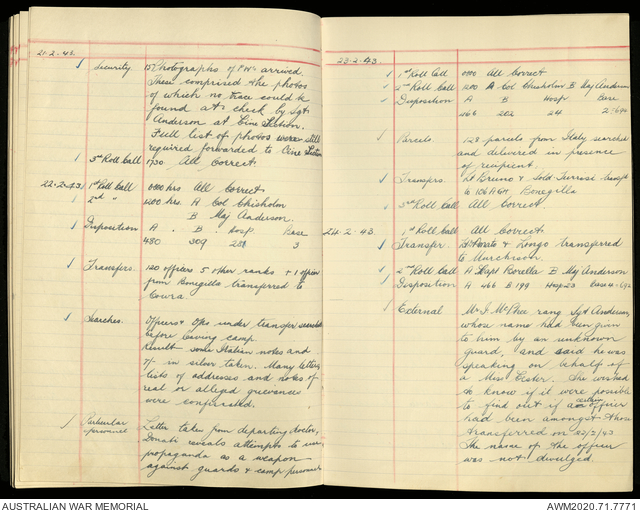 21.2.43.
Security. 15 Photographs of P.W's arrived.
These comprised the photos
of which no trace could be
found at check by Sgt
Anderson at Cine Section.
Full list of photos were still
required forwarded to Cine Section
3rd Roll Call 1730 All Correct.
22.2.43 1st Roll Call 0700 hrs All Correct
2nd " 1400 hrs. A Col Chisholm
B Maj Anderson.
Disposition A. B. Hosp. Base
480 309 3
Transfers. 120 officers 5 other ranks + 1 officer
from Bonegilla transferred to
Cowra.
Searches. Officers & Ors under transfer searched
before leaving camp.
Result some Italian notes and
7/- in silver taken. Many letters,
lists of addresses and notes of
real or alleged grievances
were confiscated.
Particular Letter taken from departing doctor,
personnel Donati reveals attempts to use
propaganda as a weapon
against guards & camp personnel
23.2.43.
1st Roll Call All Correct
2nd Roll Call A Col Chisholm B Maj Anderson
Disposition A B Hosp Base
466 202 24
Parcels 128 parcels from Italy searched
and delivered in presence
of recipient.
Transfers Lt Bruno & Sold.
to 106 AGH Bonegilla
3rd Roll Call All Correct
24.2.43. 1st Roll Call All Correct.
Transfer. & Longo transferred
to Murchison.
2nd Roll Call A Capt Borella B Maj Anderson
Disposition A 466 B 199 Hosp 23 Base 4 - 692
External Mr. I. McPhee rang Sgt Anderson,
whose name had been given
to him by an unknown
guard, and said he was
speaking on behalf of
a Miss Lister. She wished
to know if it were possible
to find out if a certain officer
had been amongst those
transferred on 22/2/43
The name of the officer
was not divulged.
AUSTRALIAN WAR MEMORIAL
AWM2020.71.7771